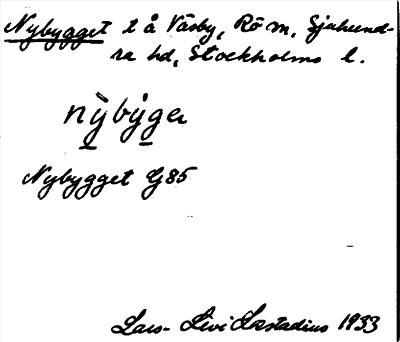 Nybygget t å Väsby, Rö sn, Sjuhund-
ra hd, Stockholms l.
nỳbýge
Nybygget G85
Lars-Levi Læstadius 1933